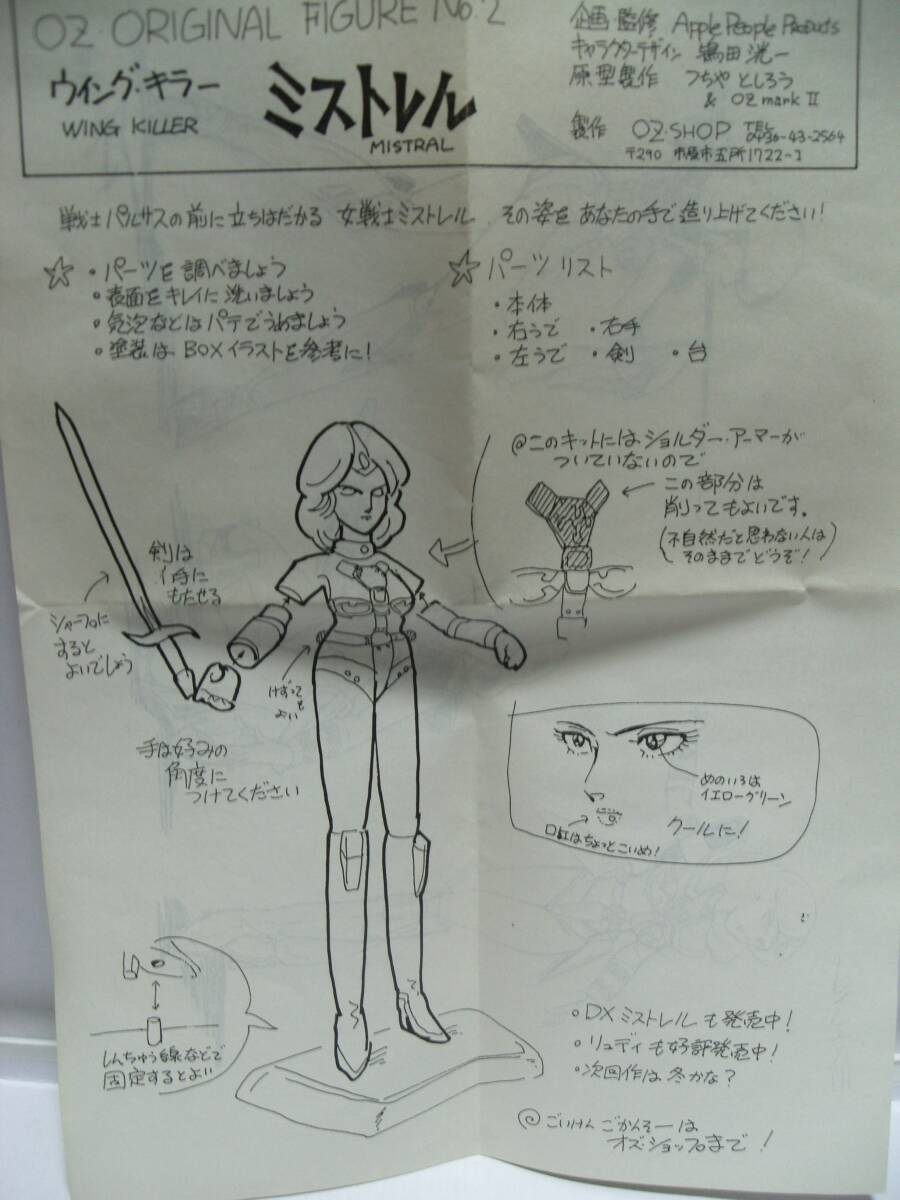 OZ ORIGINAL FIGURE No.2
ウイング・キラー
WING KILLER
ミストレル
MISTRAL
企画・監修 Apple People Products
キャラクターデザイン 鶴田洸一
原型製作 つちや としろう
& OZ mark II
製作 OZ・SHOP TEL 0436-43-2564
〒290 市原市五所1722-1
戦士パルサスの前に立ちはだかる 女戦士ミストレル その姿を あなたの手で造り上げてください!
☆ ・パーツを調べましょう
・表面をキレイに洗いましょう
・気泡などはパテでうめましょう
・塗装は BOXイラストを参考に!
☆ パーツリスト
・本体
・右うで ・右手
・左うで ・剣 ・台
@このキットにはショルダー・アーマーが
ついていないので
この部分は
削ってもよいです。
(不自然だと思わない人は
そのままでどうぞ!)
剣は
右手に
もたせる
シャープに
すると
よいでしょう
けずっても
よい
手は好みの
角度に
つけてください
めのいろは
イエローグリーン
クールに!
口紅はちょっとこいめ!
しんちゅう線などで
固定するとよい
・DXミストレルも発売中!
・リュディも好評発売中!
・次回作は冬かな?
@ごいけん ごかんそーは
オズ・ショップまで!